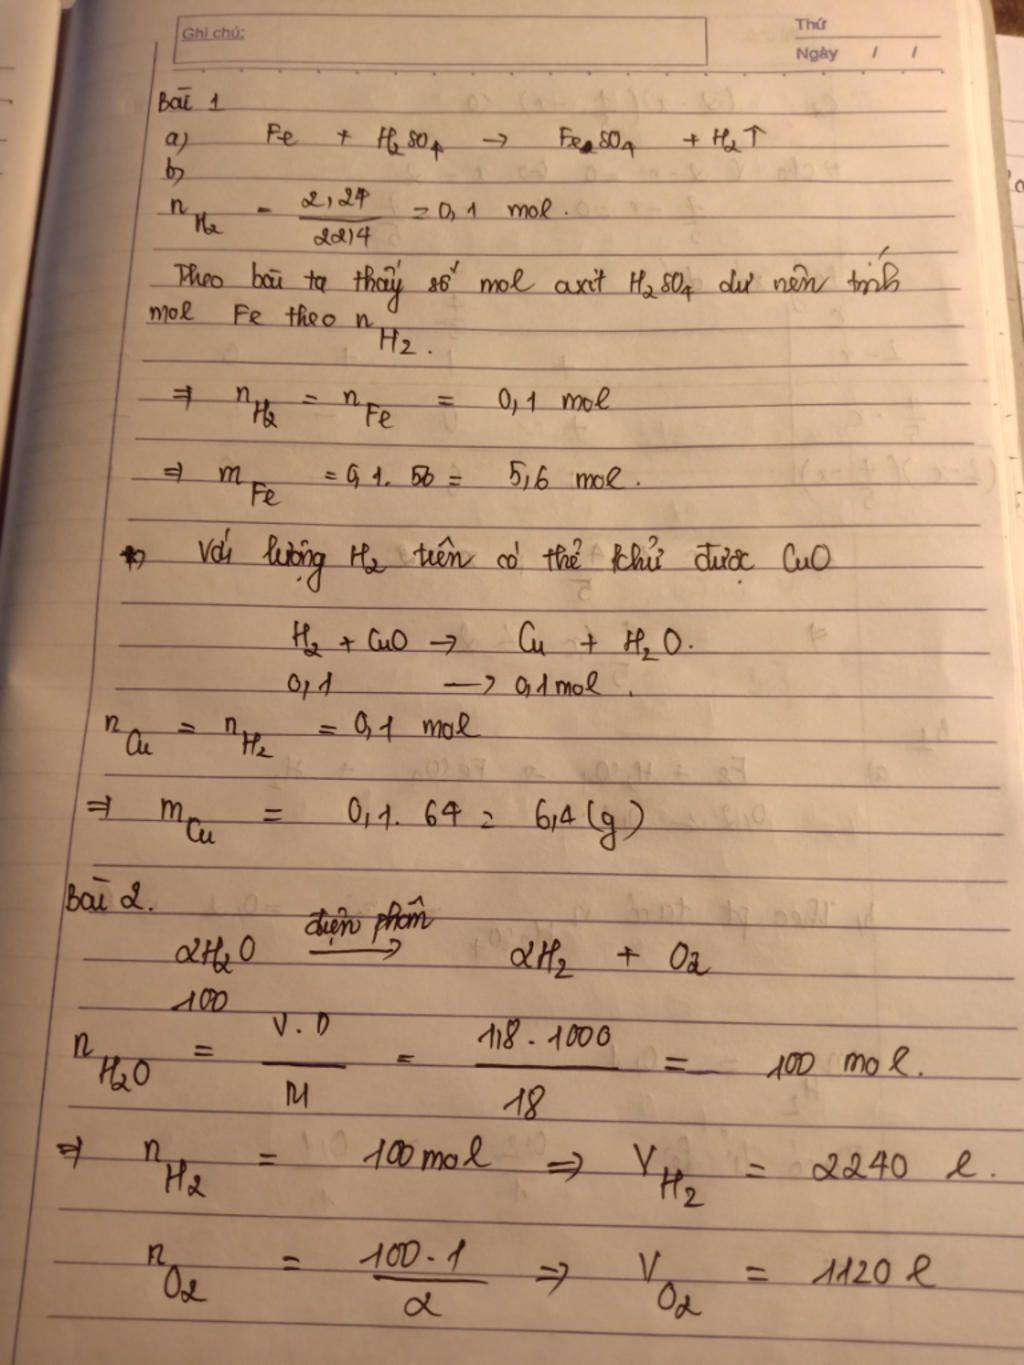 Ghi chú:
Thứ
Ngày / /
Bài 1
a) Fe + H₂SO₄ → FeSO₄ + H₂↑
b)
n_H₂ = 2,24/22,4 = 0,1 mol.
Theo bài ta thấy số mol axit H₂SO₄ dư nên tính
mol Fe theo n_H₂.
⇒ n_H₂ = n_Fe = 0,1 mol
⇒ m_Fe = 0,1. 56 = 5,6 mol.
Với lượng H₂ trên có thể khử được CuO
H₂ + CuO → Cu + H₂O.
0,1 → 0,1 mol.
n_Cu = n_H₂ = 0,1 mol
⇒ m_Cu = 0,1. 64 = 6,4 (g)
Bài 2.
điện phân
2H₂O → 2H₂ + O₂
100
n_H₂O = V.D/M = 1,8.1000/18 = 100 mol.
⇒ n_H₂ = 100 mol ⇒ V_H₂ = 2240 l.
n_O₂ = 100.1/2 ⇒ V_O₂ = 1120 l